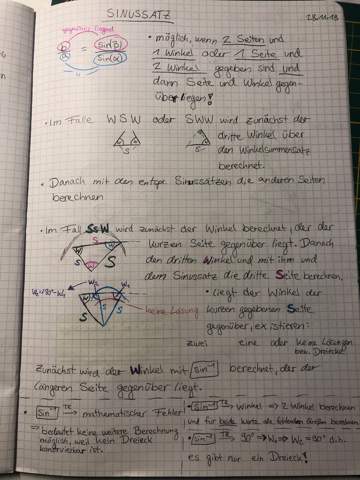 SINUSSATZ
28.11.19
b/a = sin(β)/sin(α)
• möglich, wenn 2 Seiten und
1 Winkel oder 1 Seite und
2 Winkel gegeben sind und
dann Seite und Winkel gegen-
überliegen!
• Im Falle WSW oder SWW wird zunächst der
dritte Winkel über
den Winkelsummensatz
berechnet.
• Danach mit den entspr. Sinussätzen die anderen Seiten
berechnen
• Im Fall SsW wird zunächst der Winkel berechnet, der der
kurzen Seite gegenüber liegt. Danach
den dritten Winkel und mit ihm und
dem Sinussatz die dritte Seite berechnen.
• liegt der Winkel der
kurzen gegebenen Seite
gegenüber, existieren:
keine Lösung
zwei eine oder keine Lösungen
bzw. Dreiecke!
zunächst wird der Winkel mit sin⁻¹ berechnet, der der
längeren Seite gegenüber liegt.
• sin⁻¹ TR → mathematischer Fehler
⇒ bedeutet keine weitere Berechnung
möglich, weil kein Dreieck
konstruierbar ist.
• sin⁻¹ TR → Winkel ⇒ 2. Winkel berechnen
und für beide Werte die fehlenden Größen berechnen
• sin⁻¹ TR → 90° ⇒ W₁ = W₂ = 90° d.h.
es gibt nur ein Dreieck!